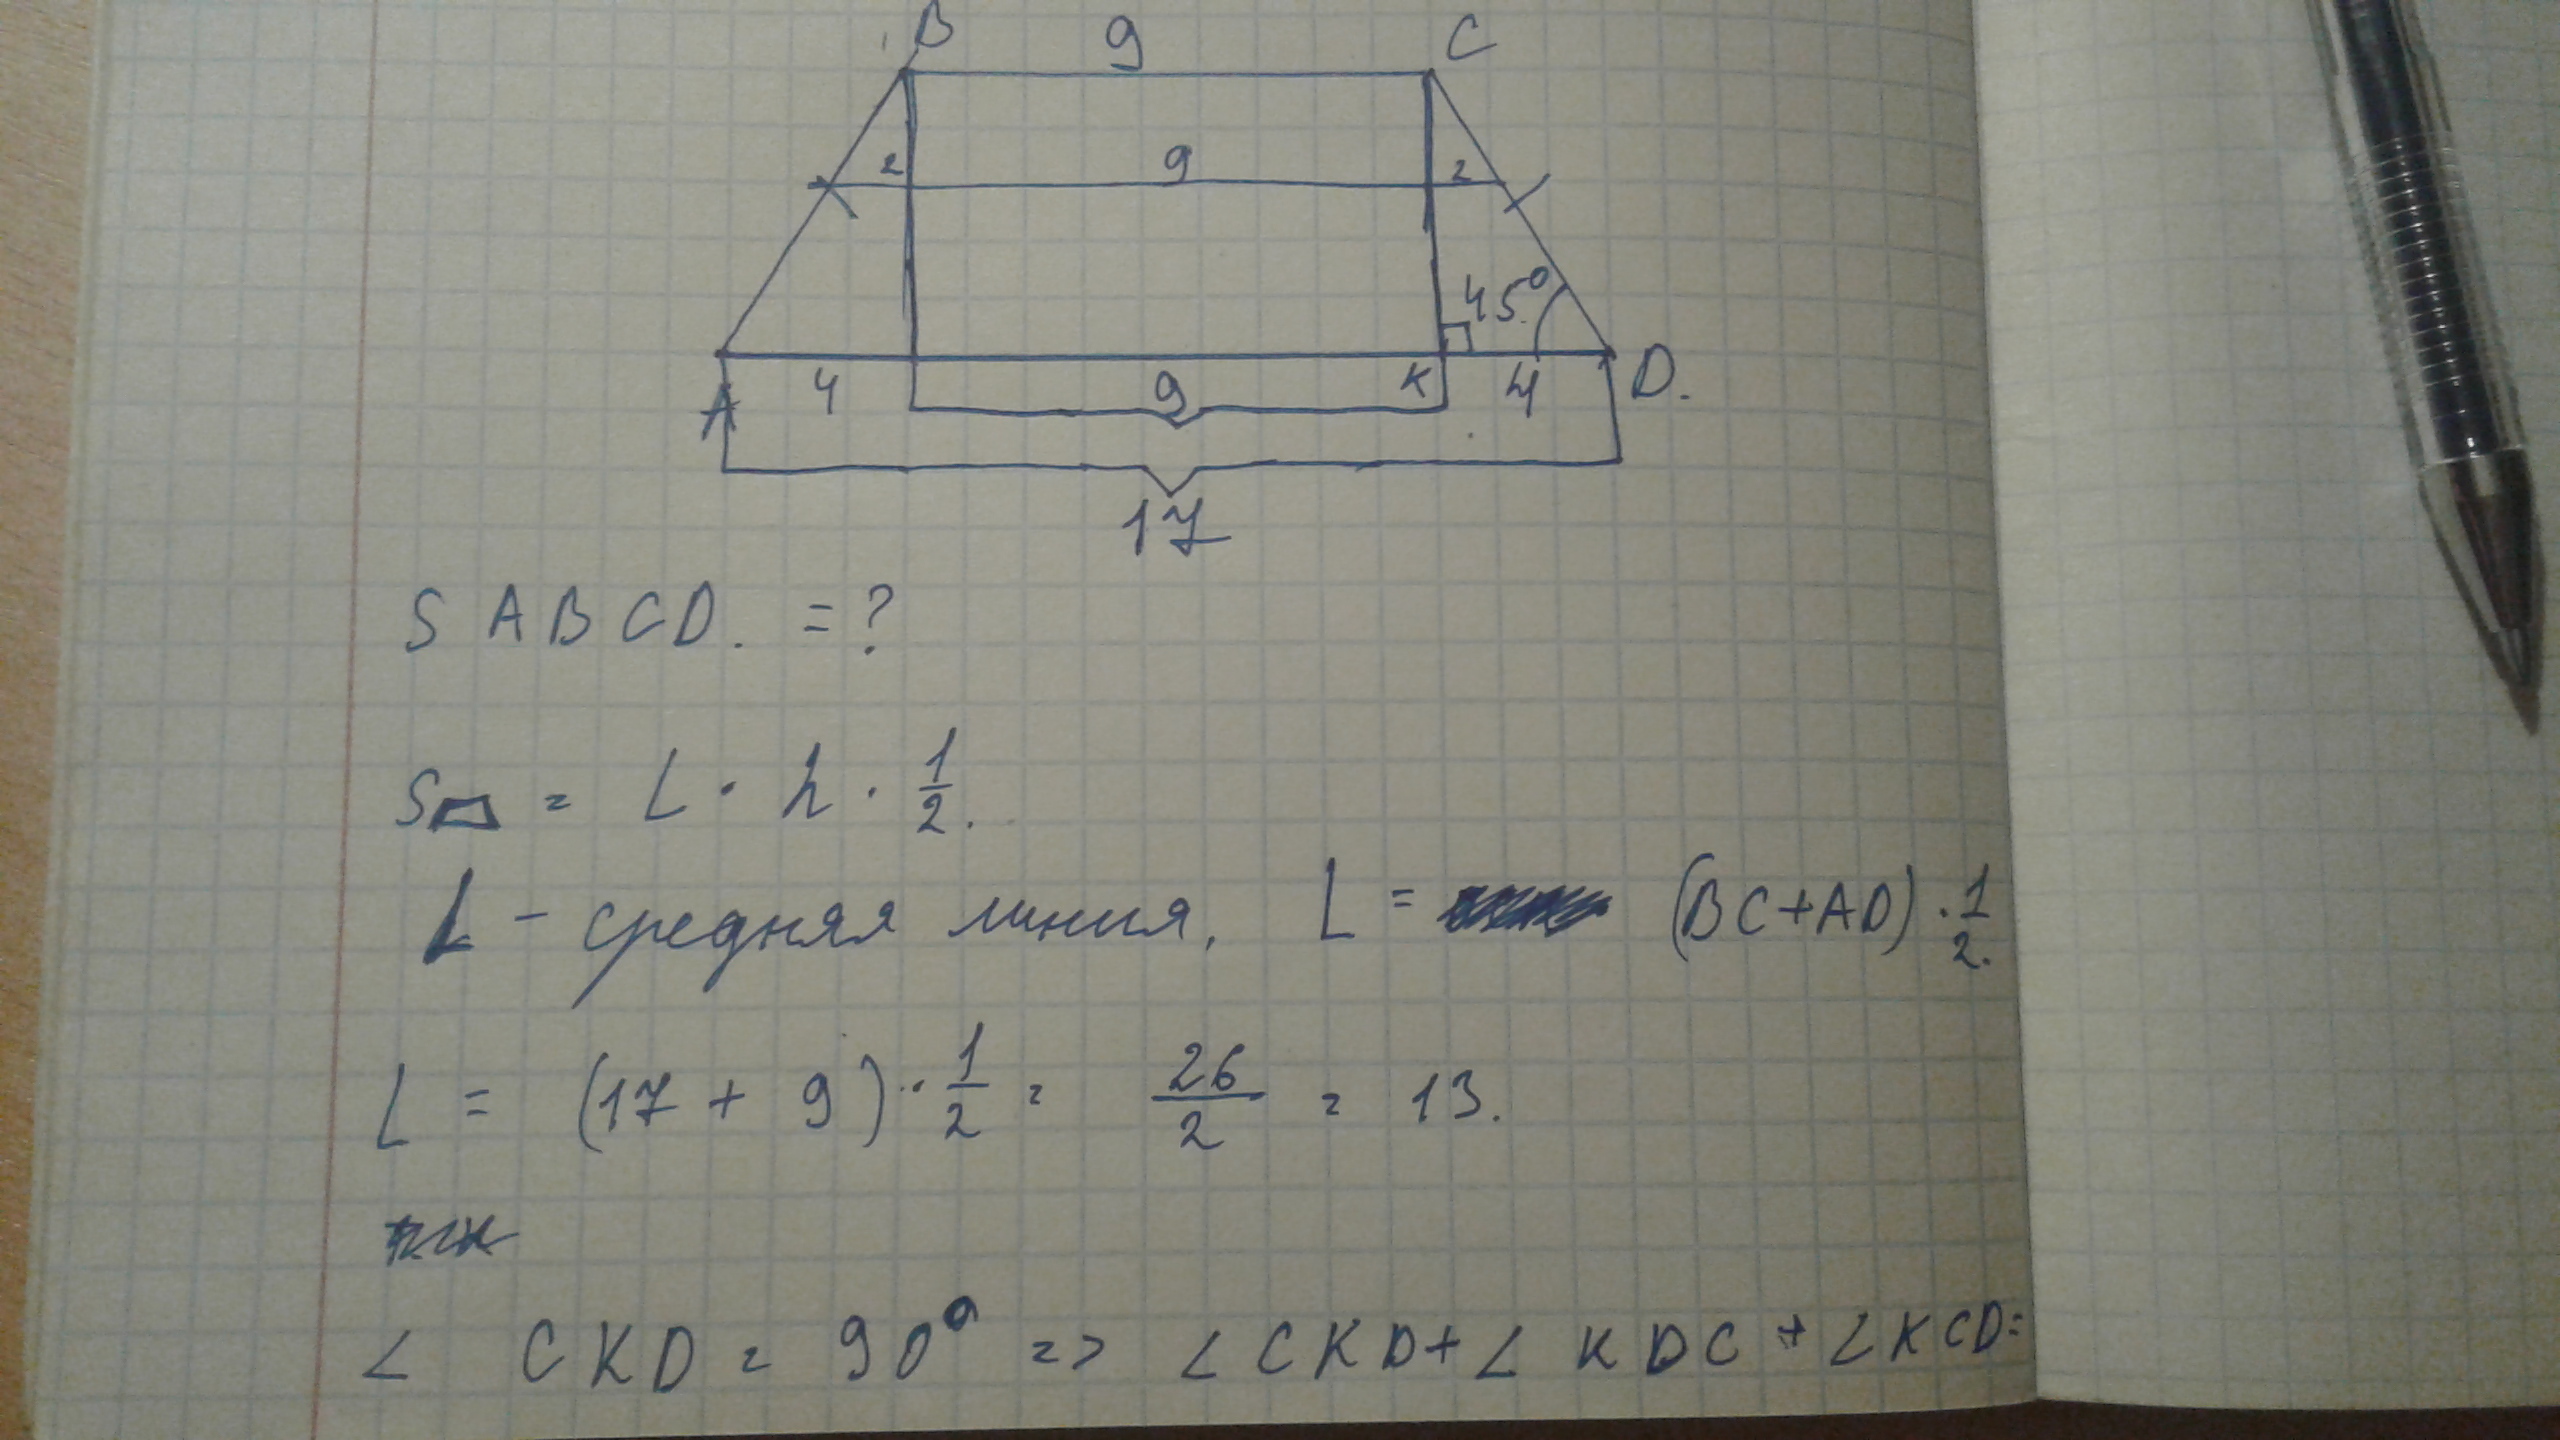 B 9 C
2 9 2
45°
A 4 9 K 4 D.
17
S ABCD. = ?
S▱ = L · h · 1/2.
L - средняя линия, L = (BC+AD) · 1/2.
L = (17 + 9) · 1/2 = 26/2 = 13.
∠ CKD = 90° => ∠ CKD + ∠ KDC + ∠ KCD =